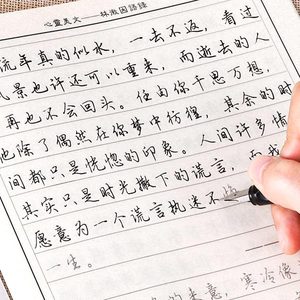 心靈美文——林徽因語錄
流年真的似水，一去不返，看过
风景也许还可以重来，而逝去的人
再也不会回头。任由你千思万想，
他除了偶然在你梦中彷徨，其余的时
间都只是恍惚的印象。人间许多情
其实只是时光撒下的谎言，而我
愿意为一个谎言执迷不
一生。
的来意，寒冷像